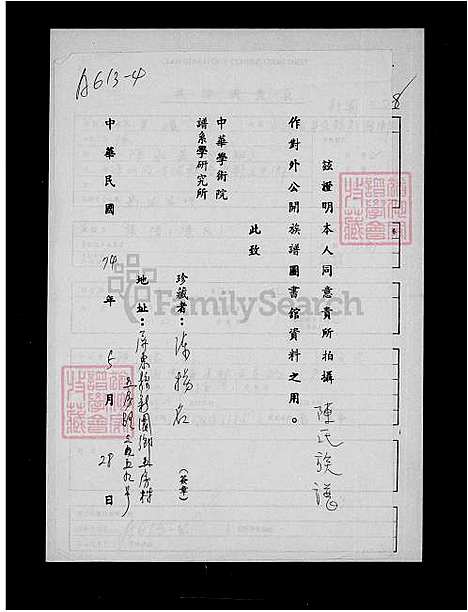 A613-4
8
茲證明本人同意貴所拍攝 陳氏族譜
作對外公開族譜圖書館資料之用。
此致
中華學術院
譜系學研究所
珍藏者：陳揚名 (簽章)
地址：屏東縣新園鄉五房村
五房路
中華民國 74 年 5 月 28 日
FamilySearch